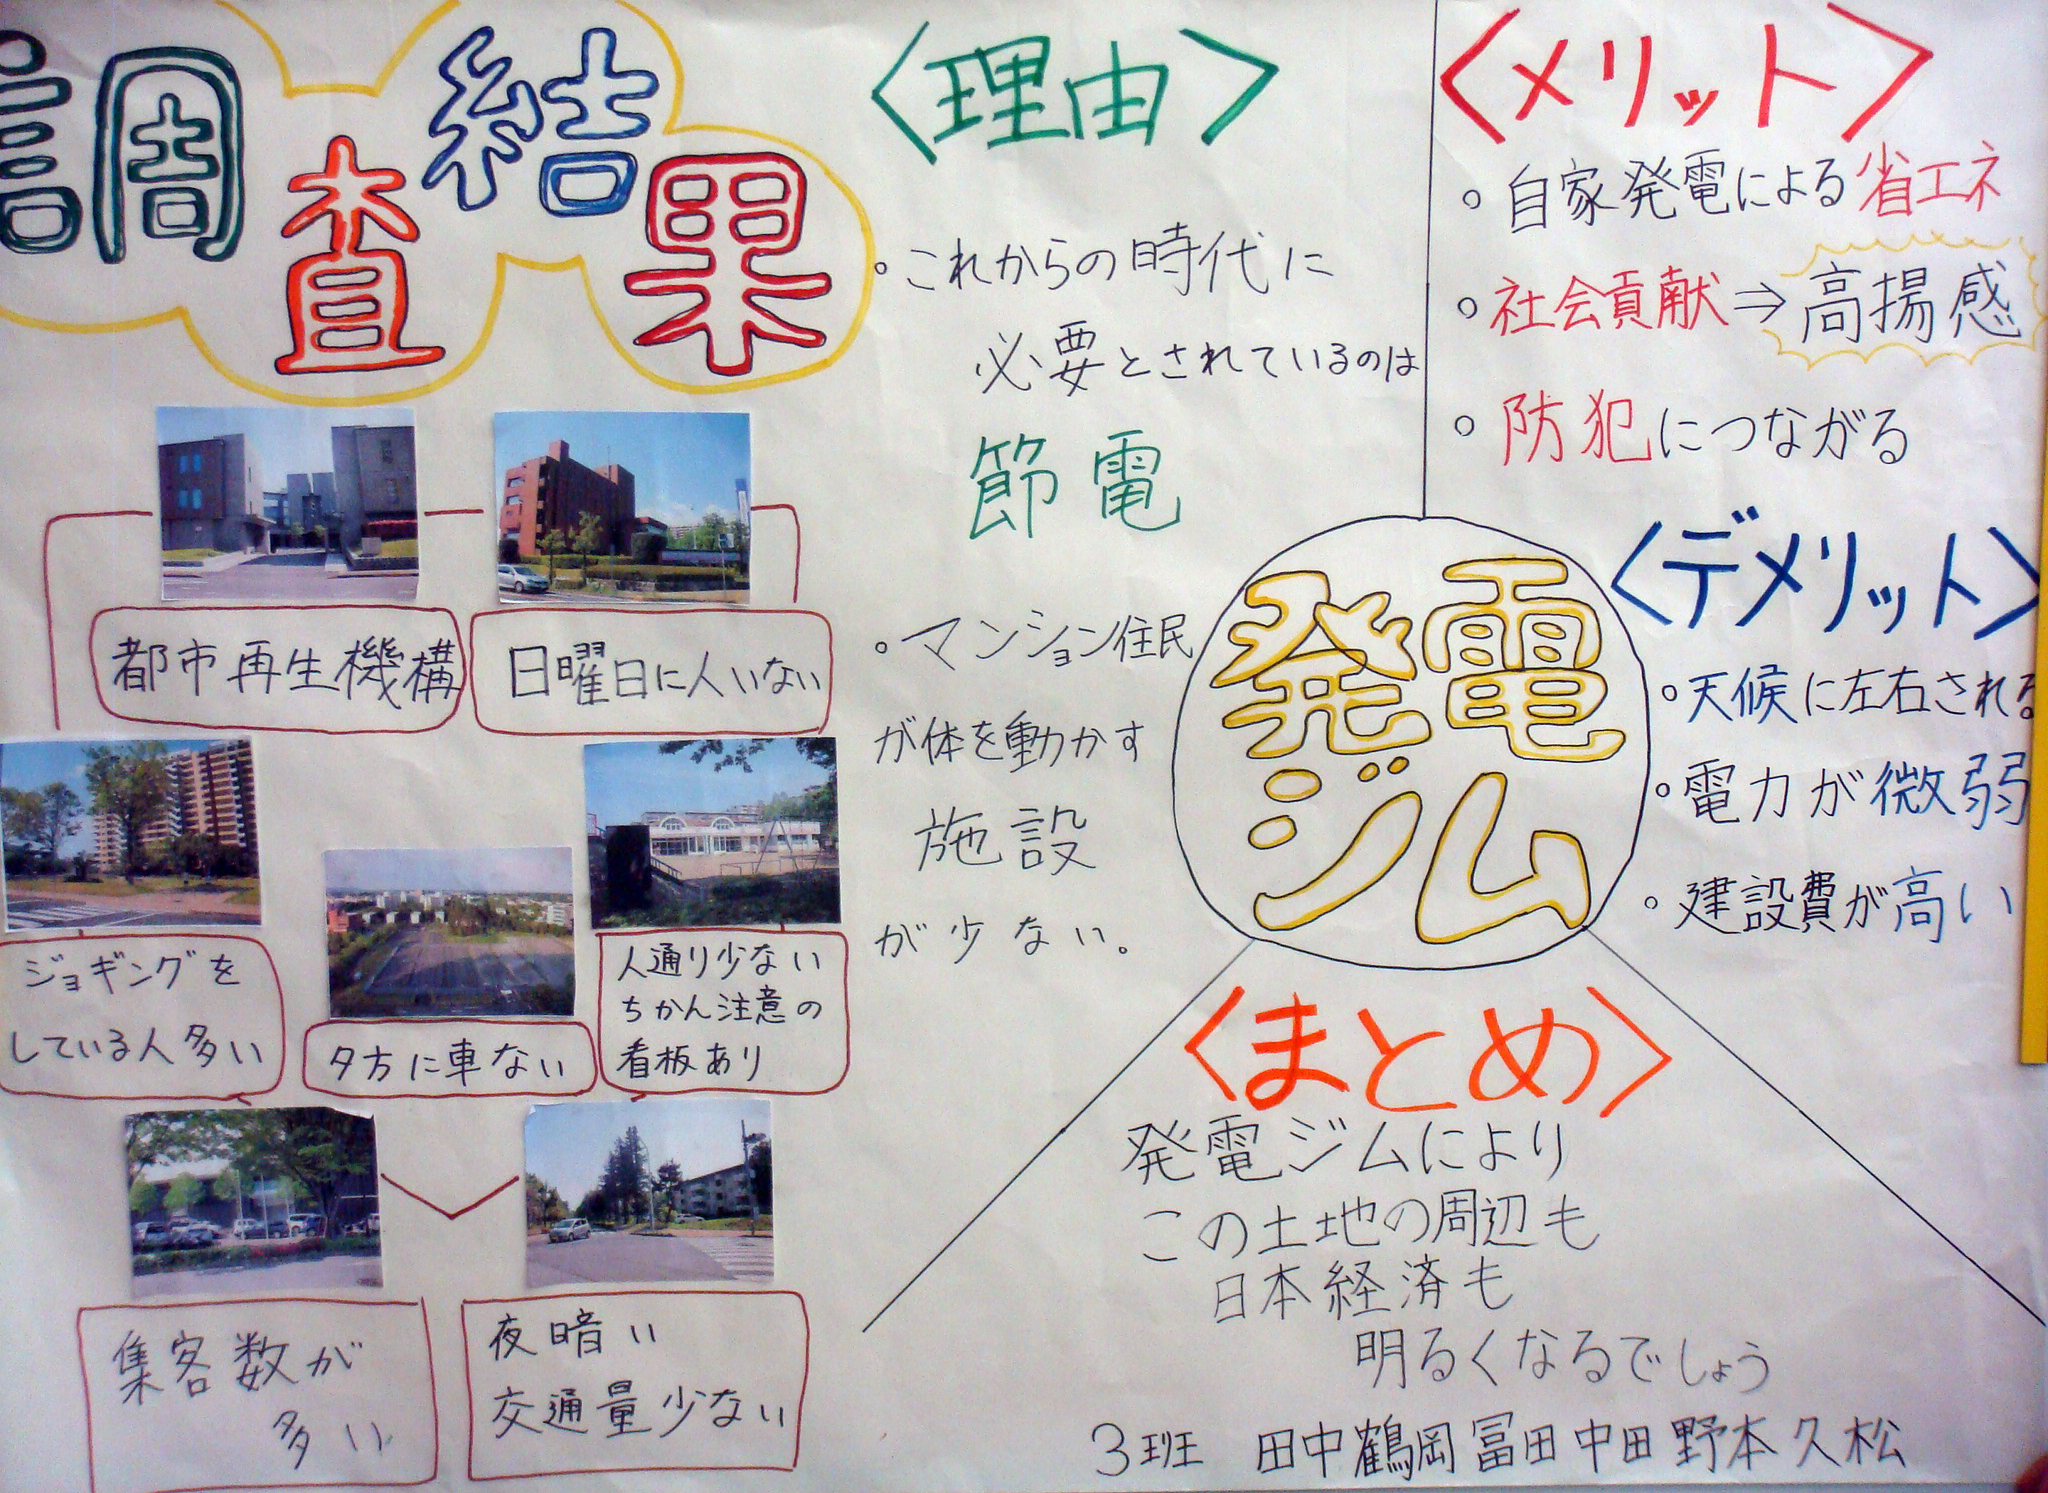 調査結果
都市再生機構
日曜日に人いない
ジョギングを
している人多い
夕方に車ない
人通り少ない
ちかん注意の
看板あり
集客数が
多い
夜暗い
交通量少ない
〈理由〉
。これからの時代に
必要とされているのは
節電
。マンション住民
が体を動かす
施設
が少ない。
〈メリット〉
。自家発電による省エネ
。社会貢献⇒高揚感
。防犯につながる
発電
ジム
〈デメリット〉
。天候に左右される
。電力が微弱
。建設費が高い
〈まとめ〉
発電ジムにより
この土地の周辺も
日本経済も
明るくなるでしょう
3班 田中鶴岡冨田中田野本久松